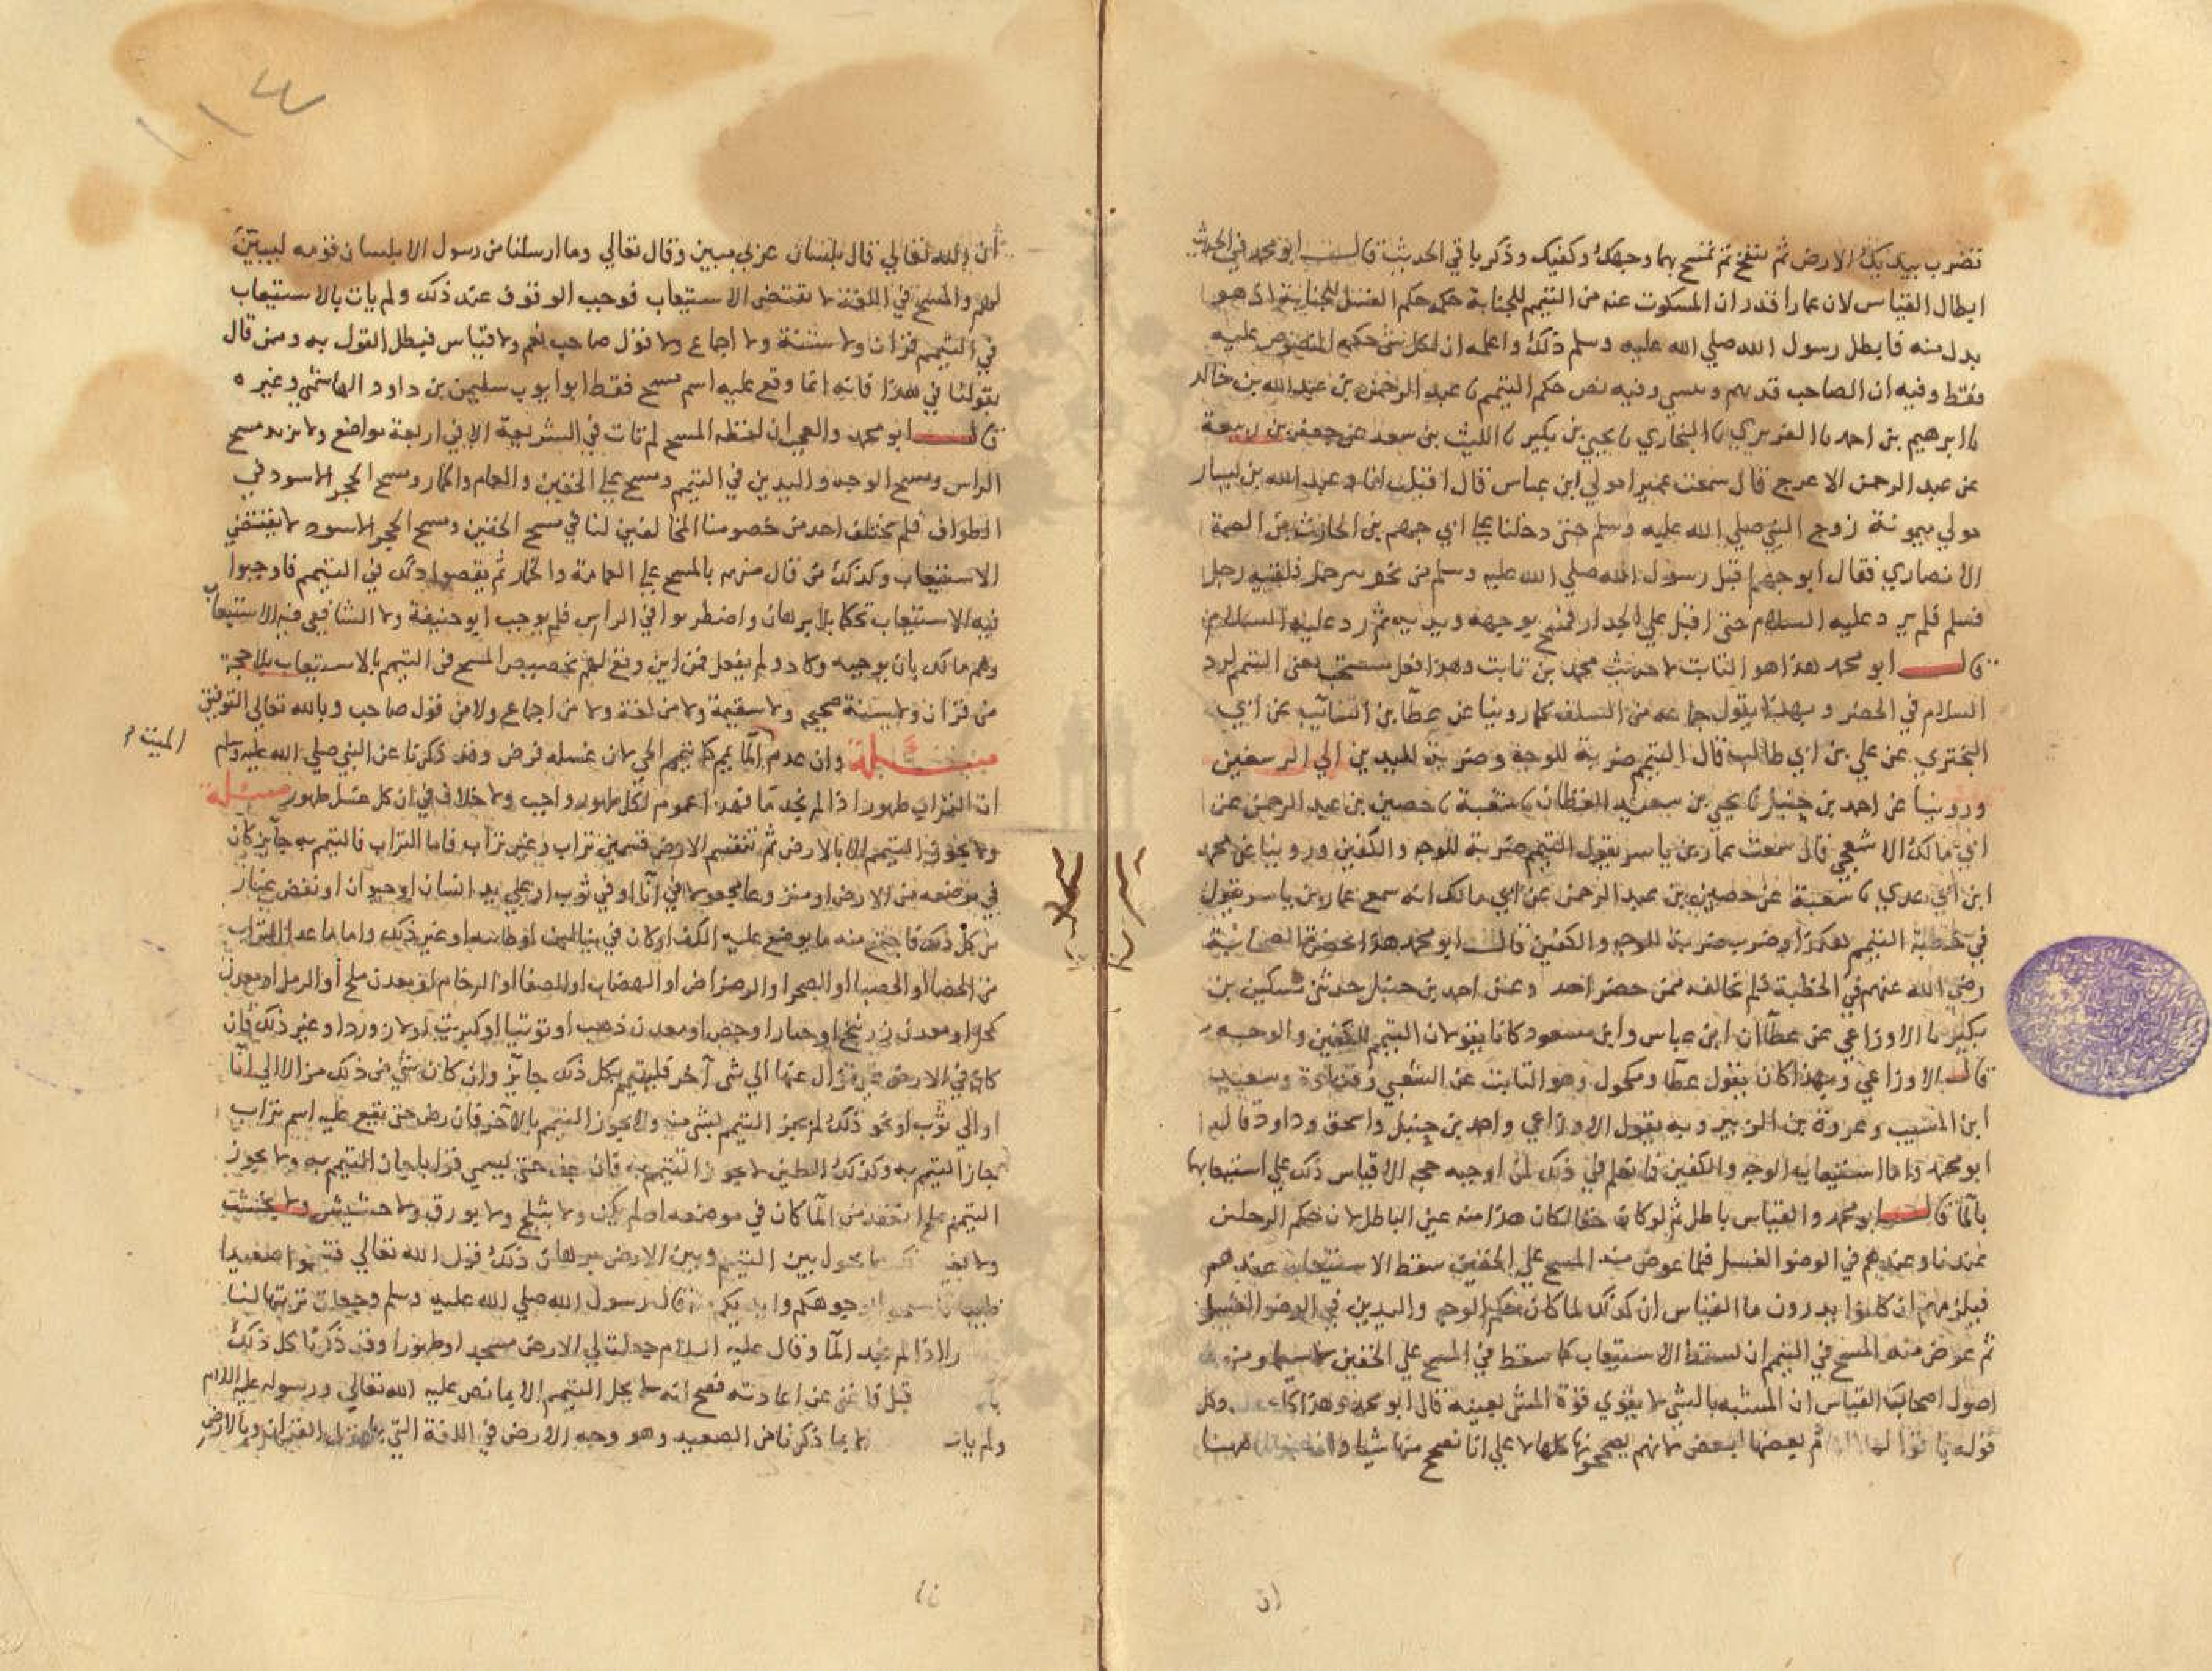 تضرب بيديك الارض ثم تنفخ ثم تمسح بهما وجهك وكفيك وذكر باقي الحديث قال ابو محمد في الحديث
ابطال القياس لان عمارا قدر ان المسكوت عنه من التيمم للجنابة حكمه حكم الغسل للجنابة اذ هو
بدل منه فابطل رسول الله صلي الله عليه وسلم ذلك واعلمه ان لكل شي حكمه المنصوص عليه
فقط وفيه ان الصاحب قد يهم وينسي وفيه نص حكم التيمم نا عبد الرحمن بن عبد الله بن خالد
نا ابرهيم بن احمد نا الفربري نا البخاري نا يحيي بن بكير نا الليث بن سعد عن جعفر بن ربيعة
عن عبد الرحمن الاعرج قال سمعت عميرا مولي ابن عباس قال اقبلت انا وعبد الله بن يسار
مولي ميمونة زوج النبي صلي الله عليه وسلم حتي دخلنا علي ابي جهم بن الحارث بن الصمة
الانصاري فقال ابو جهم اقبل رسول الله صلي الله عليه وسلم من نحو بير جمل فلقيه رجل
فسلم فلم يرد عليه السلام حتي اقبل علي الجدار فمسح بوجهه ويديه ثم رد عليه السلام
قال ابو محمد هذا هو الثابت لا حديث محمد بن ثابت وهذا فعل مستحب يعني التيمم لرد
السلام في الحضر وبهذا يقول جماعه من السلف كما روينا عن عطا بن السائب عن ابي
البختري عن علي بن ابي طالب قال التيمم ضربة للوجه وضربة لليدين الي الرسغين
وروينا عن احمد بن حنبل نا يحيي بن سعيد القطان نا شعبة نا حصين بن عبد الرحمن عن
ابي مالك الاشعجي قال سمعت عمار بن ياسر يقول التيمم ضربة للوجه والكفين وروينا عن محمد
ابن ابي عدي نا شعبة عن حصين بن عبد الرحمن عن ابي مالك انه سمع عمار بن ياسر يقول
في خطبة التيمم هكذا وضرب ضربة للوجه والكفين قال ابو محمد هذا بحضرة الصحابة
رضي الله عنهم في الخطبة فلم يخالفه ممن حضر احد وعن احمد بن حنبل حدثني مسكين بن
بكير نا الاوزاعي عن عطا ان ابن عباس وابن مسعود كانا يقولان التيمم للكفين والوجه
قال الاوزاعي وبهذا كان يقول عطا ومكحول وهو الثابت عن الشعبي وقتادة وسعيد
ابن المسيب وعروة بن الزبير وبه يقول الاوزاعي واحمد بن حنبل واسحق وداود قال
ابو محمد واما استيعاب الوجه والكفين فما نعلم في ذلك لمن اوجبه حجه الا قياس ذلك علي استيعابها
بالما قال ابو محمد والقياس باطل ثم لو كان حقا لكان هذا منه عين الباطل لان حكم الرجلين
عندنا وعندهم في الوضو الغسل فلما عوض منه المسح علي الخفين سقط الاستيعاب عندهم
فيلزمهم ان كانوا يدرون ما القياس ان كذلك لما كان حكم الوجه واليدين في الوضو الغسل
ثم عوض منه المسح في التيمم ان يسقط الاستيعاب كما سقط في المسح علي الخفين لا سيما ومن
اصول اصحاب القياس ان المشبه بالشي لا يقوي قوة المشبه بعينه قال ابو محمد وهذا كله وكل
ثم بعضها ببعض لانهم يصححونها كلها لا علي انا نصحح منها شيا
ان الله تعالي قال بلسان عربي مبين وقال تعالي وما ارسلنا من رسول الا بلسان قومه ليبين
لهم والمسح في اللغة لا تقتضي الاستيعاب فوجب الوقوف عند ذلك ولم يات بالاستيعاب
في التيمم قران ولا سنة ولا اجماع ولا قول صاحب نعم ولا قياس فبطل القول به ومن قال
بقولنا في هذا فانه انما وقع عليه اسم مسح فقط ابو ايوب سليمن بن داود الهاشمي وغيره
قال ابو محمد والعجب ان لفظه المسح لم تات في الشريعة الا في اربعة مواضع ولا مزيد مسح
الراس ومسح الوجه واليدين في التيمم ومسح علي الخفين والعمام والخمار ومسح الحجر الاسود في
الطواف فلم يختلف احد من خصومنا المخالفين لنا في مسح الخفين ومسح الحجر الاسود لا يقتضي
الاستيعاب وكذلك من قال منهم بالمسح علي العمامة والخمار ثم نقضوا ذلك في التيمم فاوجبوا
فيه الاستيعاب تحكما بلا برهان واضطربوا في الراس فلم يوجب ابو حنيفة ولا الشافعي فيه الاستيعاب
وهم مالك بان يوجبه وكاد ولم يفعل فمن اين وقع لهم تخصيص المسح في التيمم بالاستيعاب بلا حجة
من قران ولا سنة صحيح ولا سقيمة ولا من لغة ولا من اجماع ولا من قول صاحب وبالله تعالي التوفيق
الميت
مسئلة وان عدم الما يمم كما يتيمم الحي لان غسله فرض وقد ذكرنا عن النبي صلي الله عليه وسلم
ان التراب طهور اذا لم نجد ما فهذا عموم لكل طهور واجب ولا خلاف في ان كل غسل طهور مسئلة
ولا يجوز التيمم الا بالارض ثم تنقسم الارض قسمين تراب وغير تراب فاما التراب فالتيمم به جايز كان
في موضعه من الارض او منزوعا مجعولا في انا او في ثوب او علي يد انسان او حيوان او نفض غبار
من كل ذلك فاجتمع منه ما يوضع عليه الكف او كان في بنا لبن او طابيه او غير ذلك واما ما عدا التراب
من الحصا او الحصبا او الصحرا او الرضراض او الهضاب او الصفا او الرخام او معدن ملح او الرمل او معدن
كحل او معدن زرنيخ او جيار او جص او معدن ذهب او توتيا او كبريت او لازورد او غير ذلك فان
كان في الارض غير مزال عنها الي شي آخر فليتيمم بكل ذلك جايز وان كان شي من ذلك مزالا الي انا
او الي ثوب او نحو ذلك لم يجز التيمم بشي منه ولا يجوز التيمم بالآخر فان رض حتي يقع عليه اسم تراب
جاز التيمم به وكذلك الطين لا يجوز التيمم به فان جف حتي يسمي ترابا جاز التيمم به ولا يجوز
التيمم بملح انعقد من الما كان في موضعه او لم يكن ولا بثلج ولا بورق ولا حشيش ولا بخشب
ولا بغير ذلك مما يحول بين التيمم وبين الارض برهان ذلك قول الله تعالي فتيمموا صعيدا
طيبا فامسحوا بوجوهكم وايديكم قال رسول الله صلي الله عليه وسلم وجعلت تربتها لنا
اذا لم نجد الما وقال عليه السلام جعلت لي الارض مسجدا وطهورا وقد ذكرنا كل ذلك
قبل فاغني عن اعادته فصح انه لا يحل التيمم الا بما نص عليه الله تعالي ورسوله عليه السلام
ولم يات بما ذكرنا من الصعيد وهو وجه الارض في اللغة التي بها نزل القران وبالارض